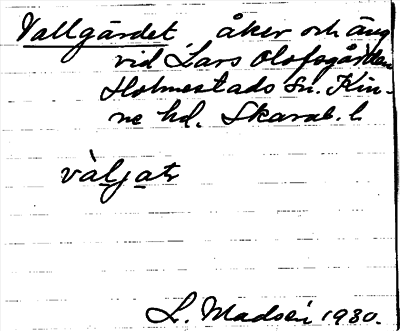 Vallgärdet, åker och äng
vid Lars Olofsgården
Holmestads sn. Kin-
ne hd. Skarab. l.
väljatr
L. Madsén 1930.